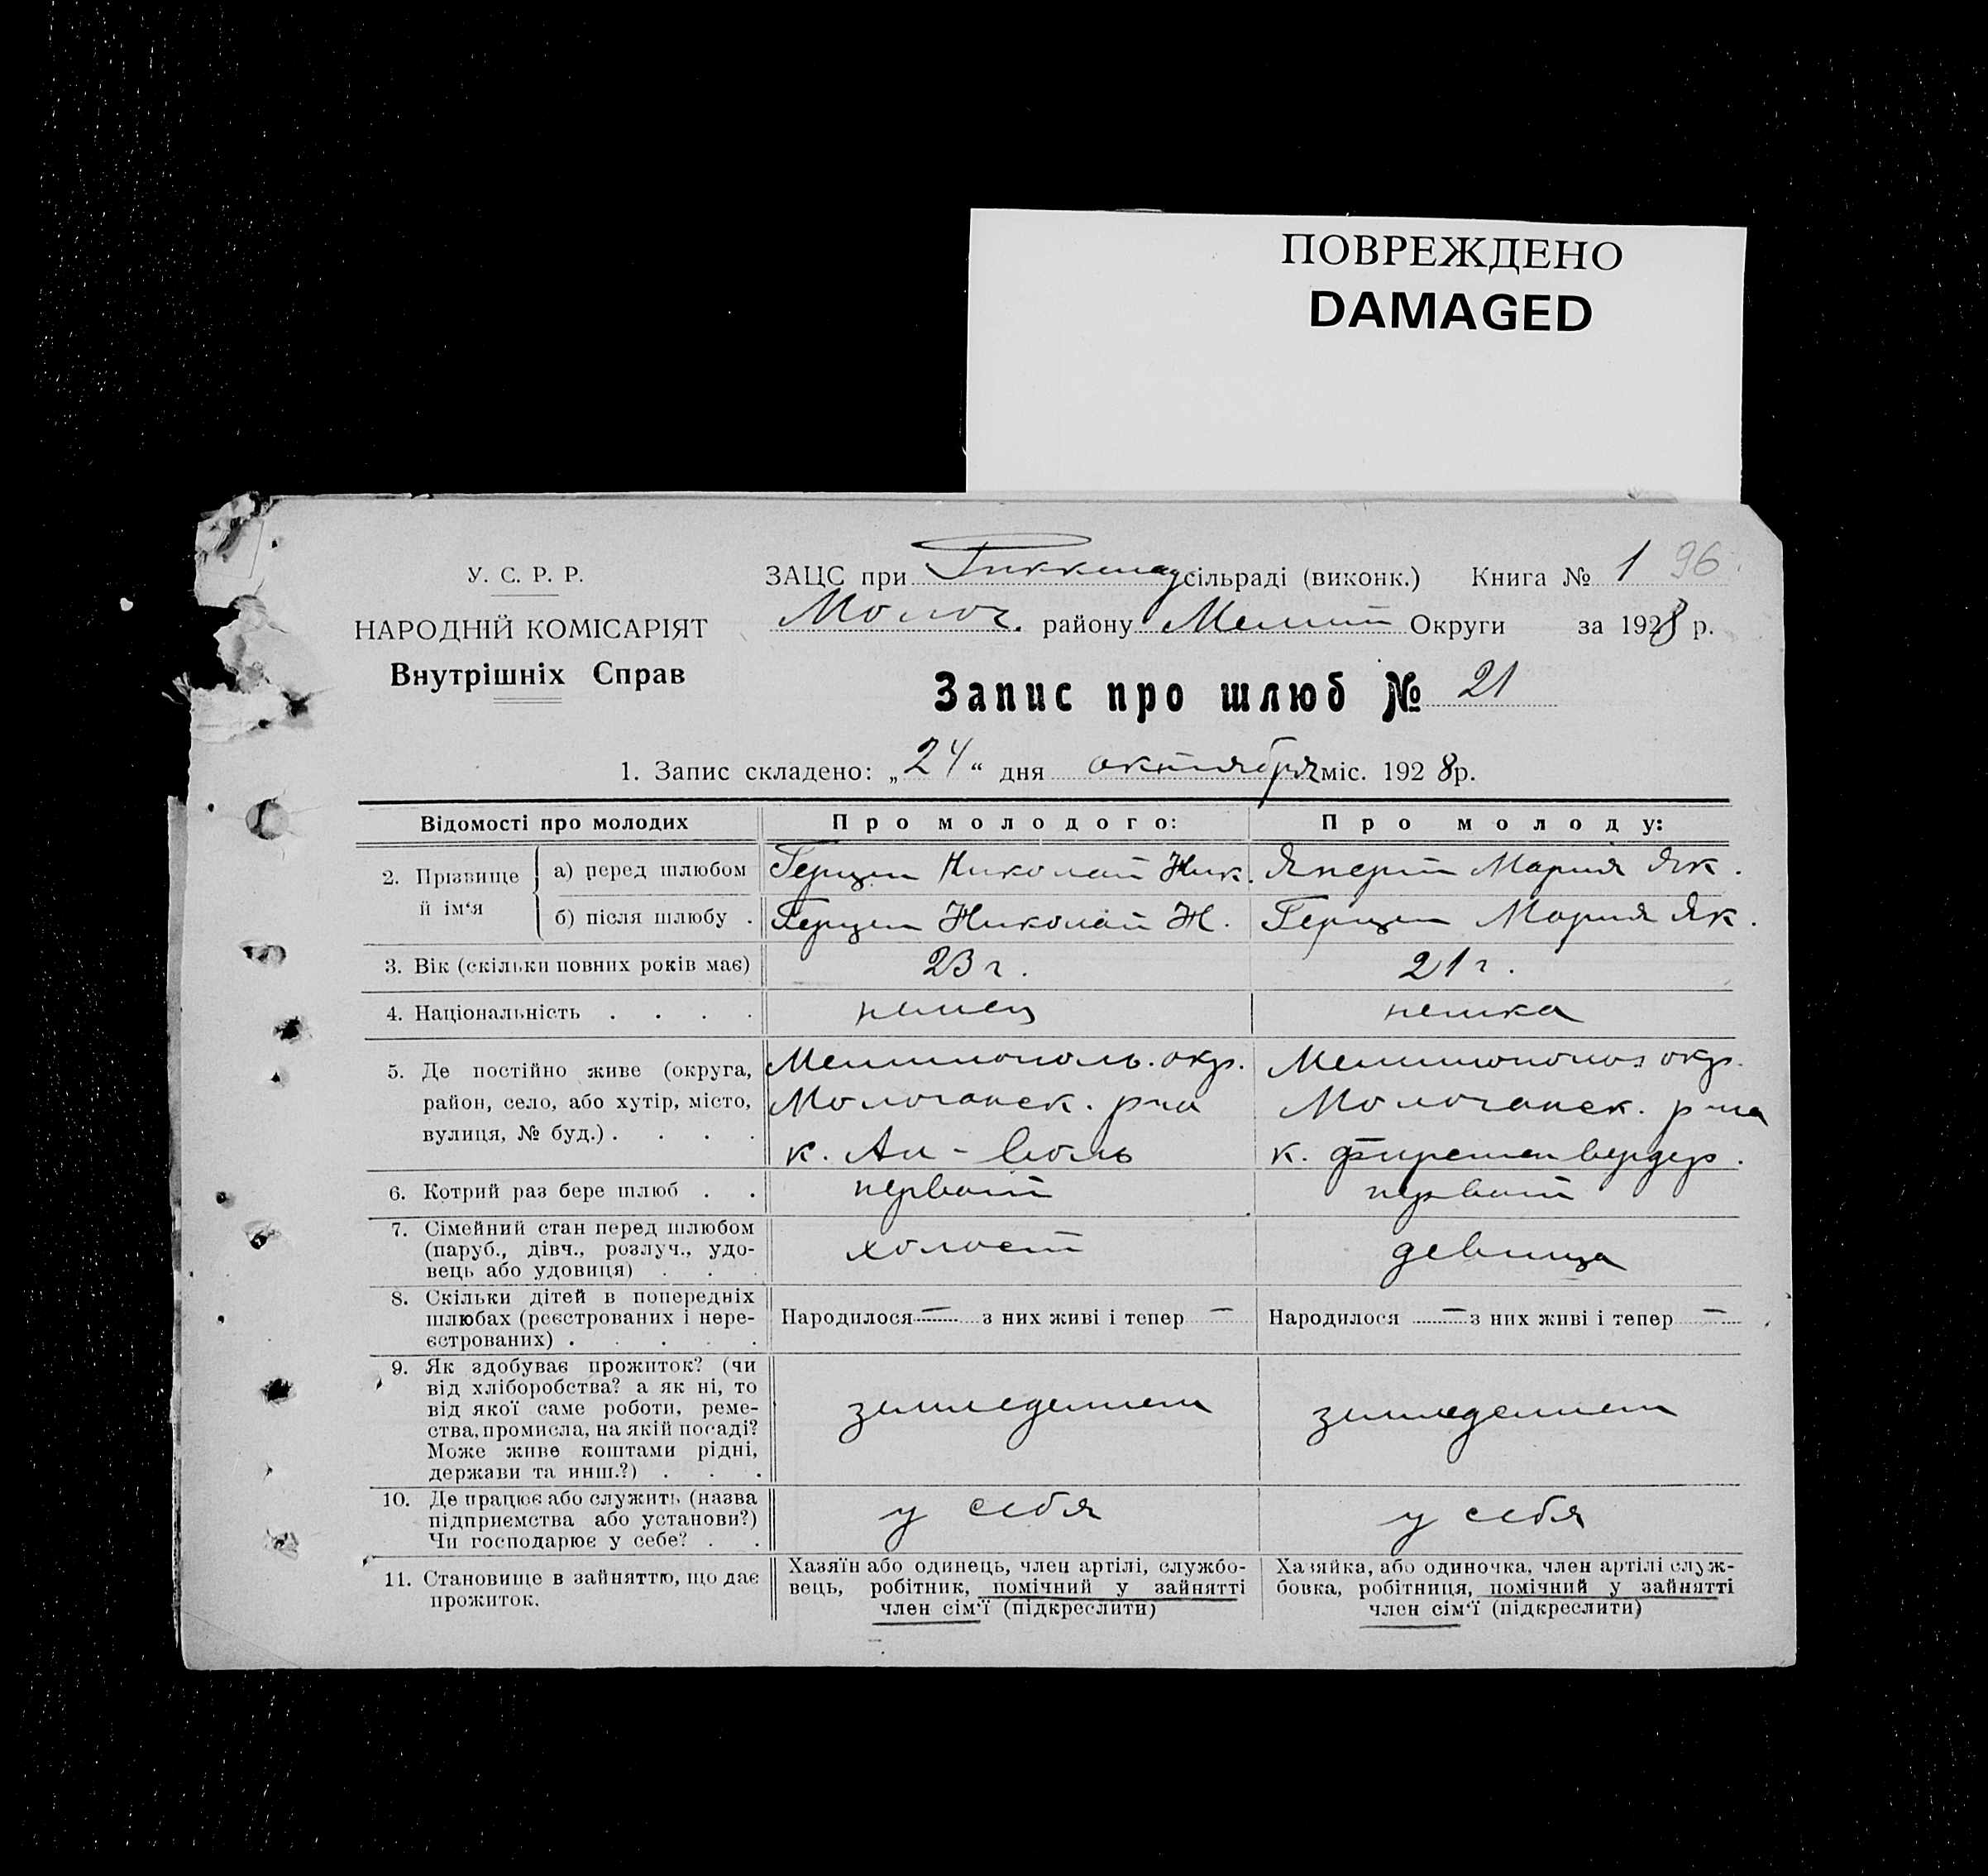 ПОВРЕЖДЕНО
DAMAGED
У. С. Р. Р.
НАРОДНІЙ КОМІСАРІЯТ
Внутрішніх Справ
ЗАЦС при сільраді (виконк.) Книга № 1 96
Молоч. району Мелит Округи за 1928 р.
Запис про шлюб № 21
1. Запис складено: „24“ дня октября міс. 1928 р.
Відомості про молодих Про молодого: Про молоду:
2. Прізвище й ім‘я
а) перед шлюбом Герцен Николай Ник. Яперт Мария Як.
б) після шлюбу . Герцен Николай Н. Герцен Мария Як.
3. Вік (скільки повних років має) 23 г. 21 г.
4. Національність . . . . немец немка
5. Де постійно живе (округа, район, село, або хутір, місто, вулиця, № буд.) . . . .
Мелитополь. окр. Молочанск. р-на к.
Мелитопол. окр. Молочанск. р-на к. Фирстенвердер.
6. Котрий раз бере шлюб . . первый первый
7. Сімейний стан перед шлюбом
(паруб., дівч., розлуч., удо-
вець або удовиця) . . . холост девица
8. Скільки дітей в попередніх
шлюбах (реєстрованих і нере-
єстрованих) . . . . .
Народилося — з них живі і тепер — Народилося — з них живі і тепер —
9. Як здобуває прожиток? (чи
від хліборобства? а як ні, то
від якої саме роботи, реме-
ства, промисла, на якій посаді?
Може живе коштами рідні,
держави та инш.?) . . .
земледелием земледелием
10. Де працює або служить (назва
підприємства або установи?)
Чи господарює у себе? . .
у себя у себя
11. Становище в зайняттю, що дає
прожиток.
Хазяїн або одинець, член артілі, службо-
вець, робітник, помічний у зайнятті
член сім‘ї (підкреслити)
Хазяйка, або одиночка, член артілі служ-
бовка, робітниця, помічний у зайнятті
член сім‘ї (підкреслити)